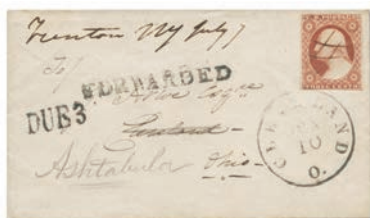 Trenton NY July 7
To/
FORWARDED
DUE 3
Esqr
Ashtabula Ohio
CLEVELAND
10
O.
THREE CENTS